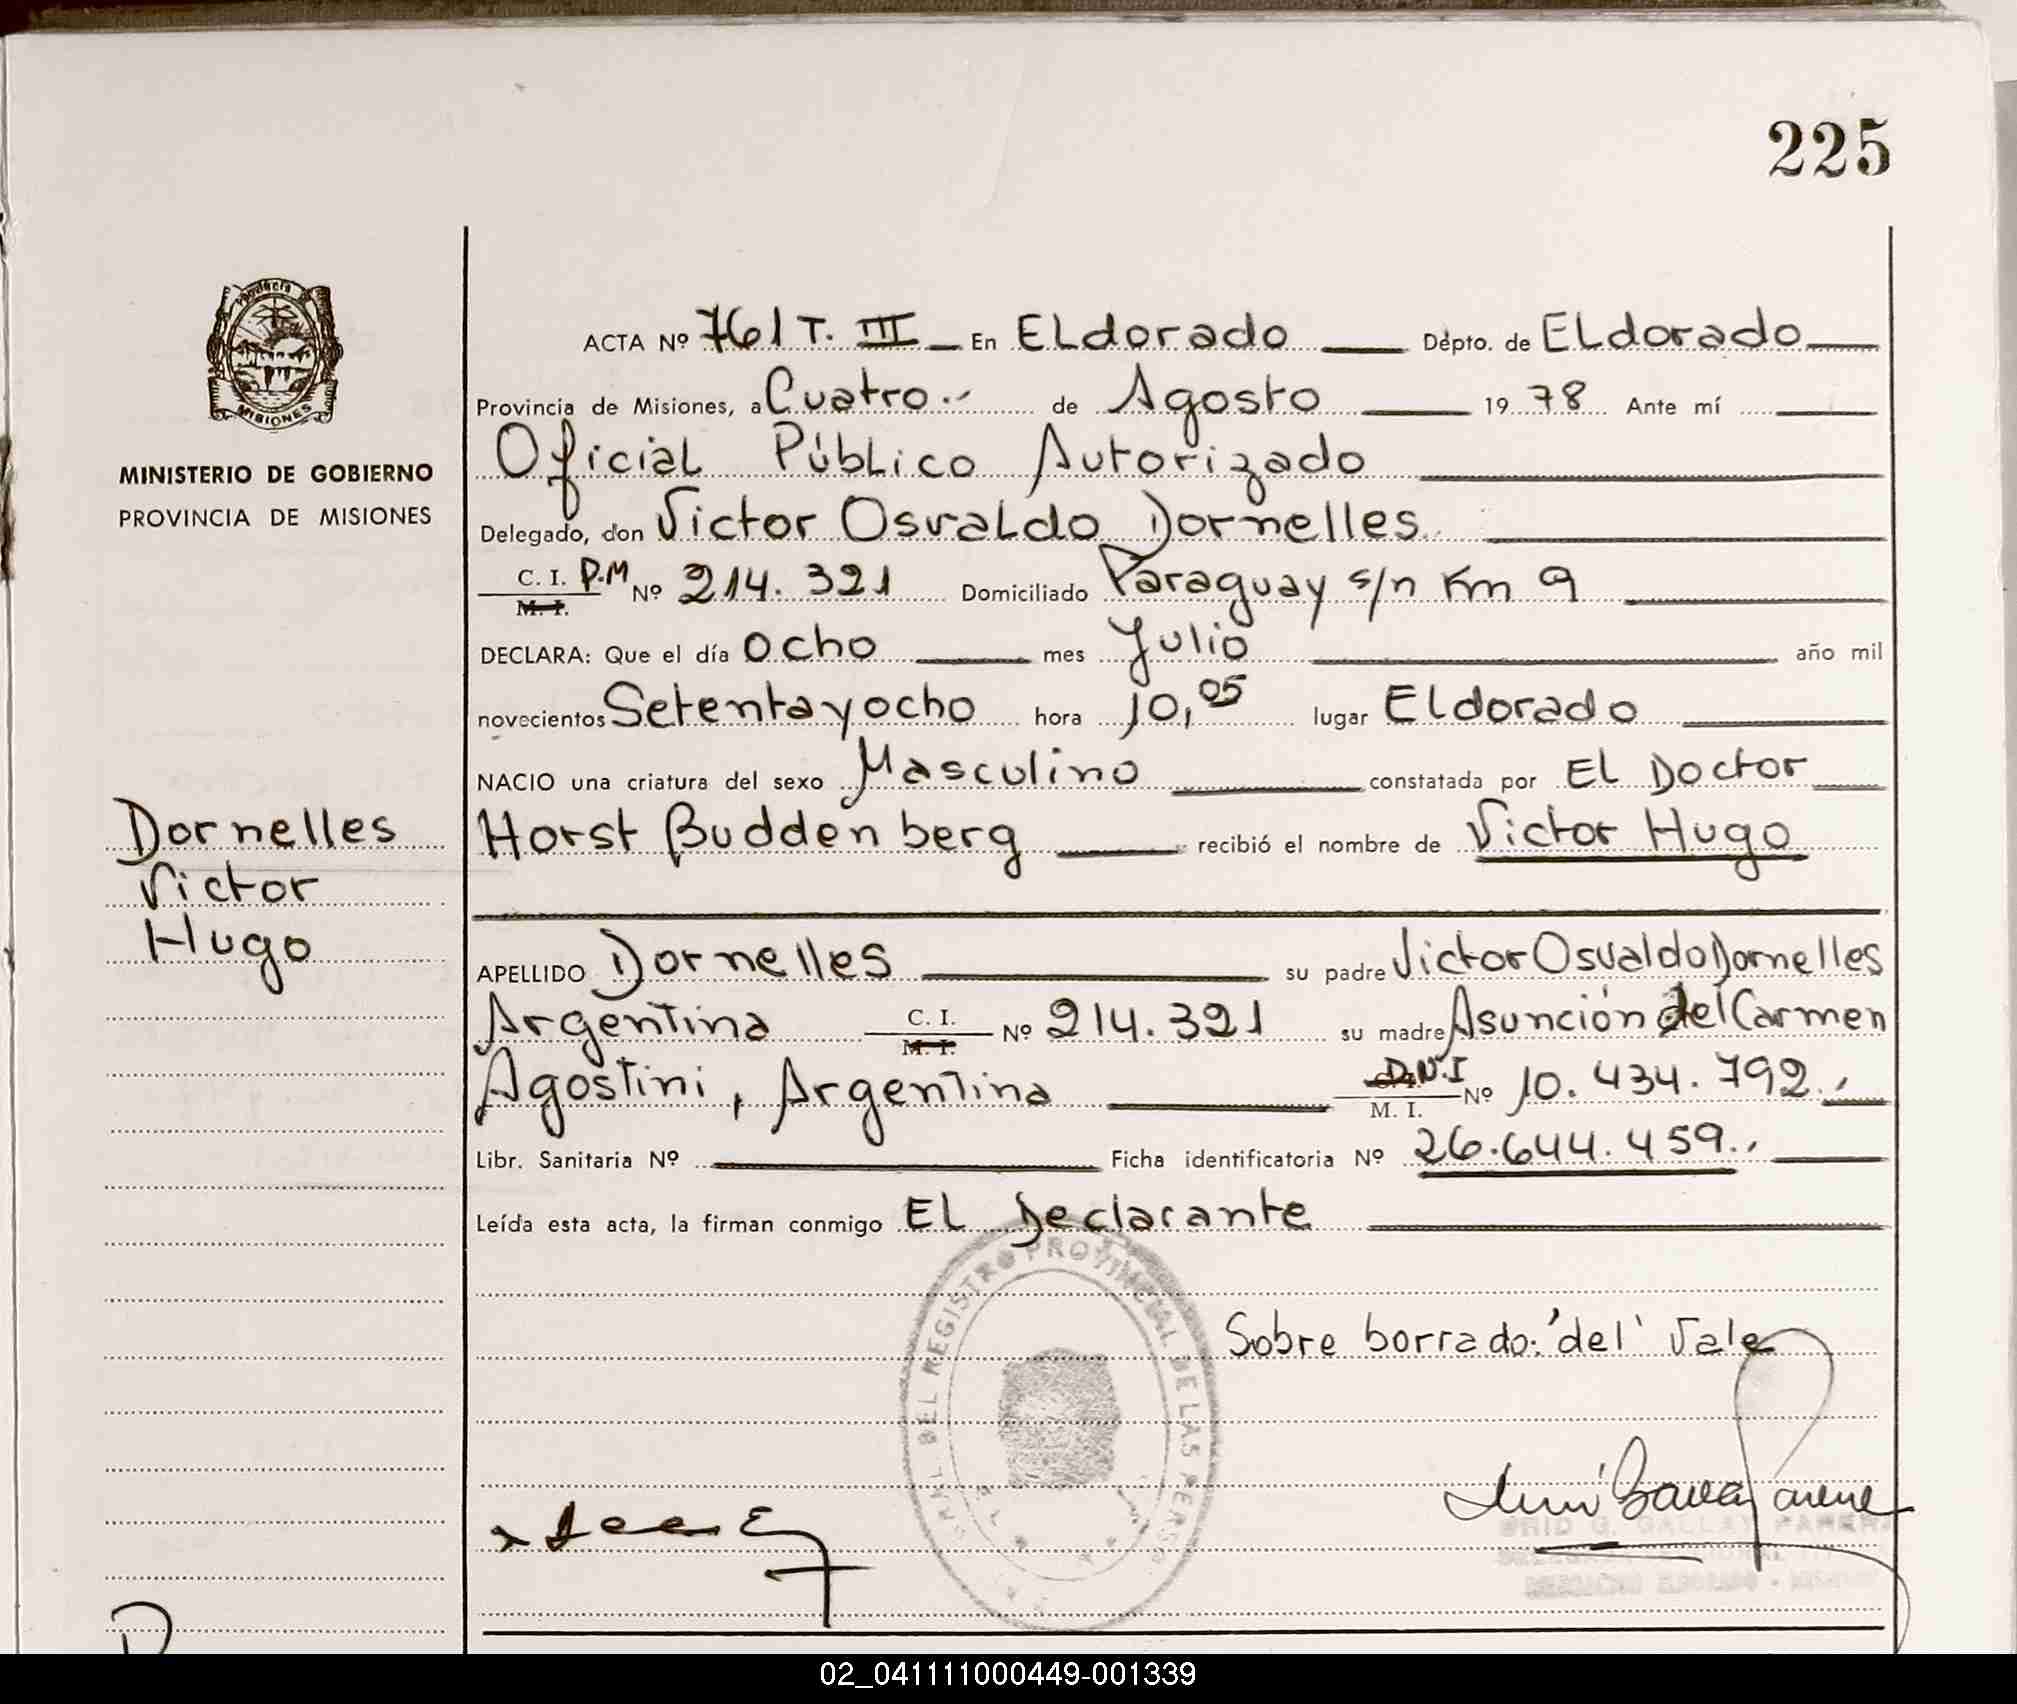 225
Provincia
MISIONES
MINISTERIO DE GOBIERNO
PROVINCIA DE MISIONES
Dornelles
Victor
Hugo
ACTA Nº 761 T. III En ELdorado Dépto. de ELdorado
Provincia de Misiones, a Cuatro.- de Agosto 1978 Ante mí
Oficial Público Autorizado
Delegado, don Victor Osvaldo Dornelles
C. I. P.M Nº 214.321 Domiciliado Paraguay s/n Km 9
M. I.
DECLARA: Que el día ocho mes Julio año mil
novecientos Setentayocho hora 10,05 lugar Eldorado
NACIO una criatura del sexo Masculino constatada por El Doctor
Horst Buddenberg recibió el nombre de Victor Hugo
APELLIDO Dornelles su padre Victor Osvaldo Dornelles
Argentina C. I. Nº 214.321 su madre Asunción del Carmen
M. I.
Agostini, Argentina D.N.I Nº 10.434.792.-
M. I.
Libr. Sanitaria Nº Ficha identificatoria Nº 26.644.459.-
Leída esta acta, la firman conmigo El Declarante
DEL REGISTRO PROVINCIAL DE LAS PERSO
Sobre borrado: 'del' Vale
G. GALLAY PARERA
02_041111000449-001339